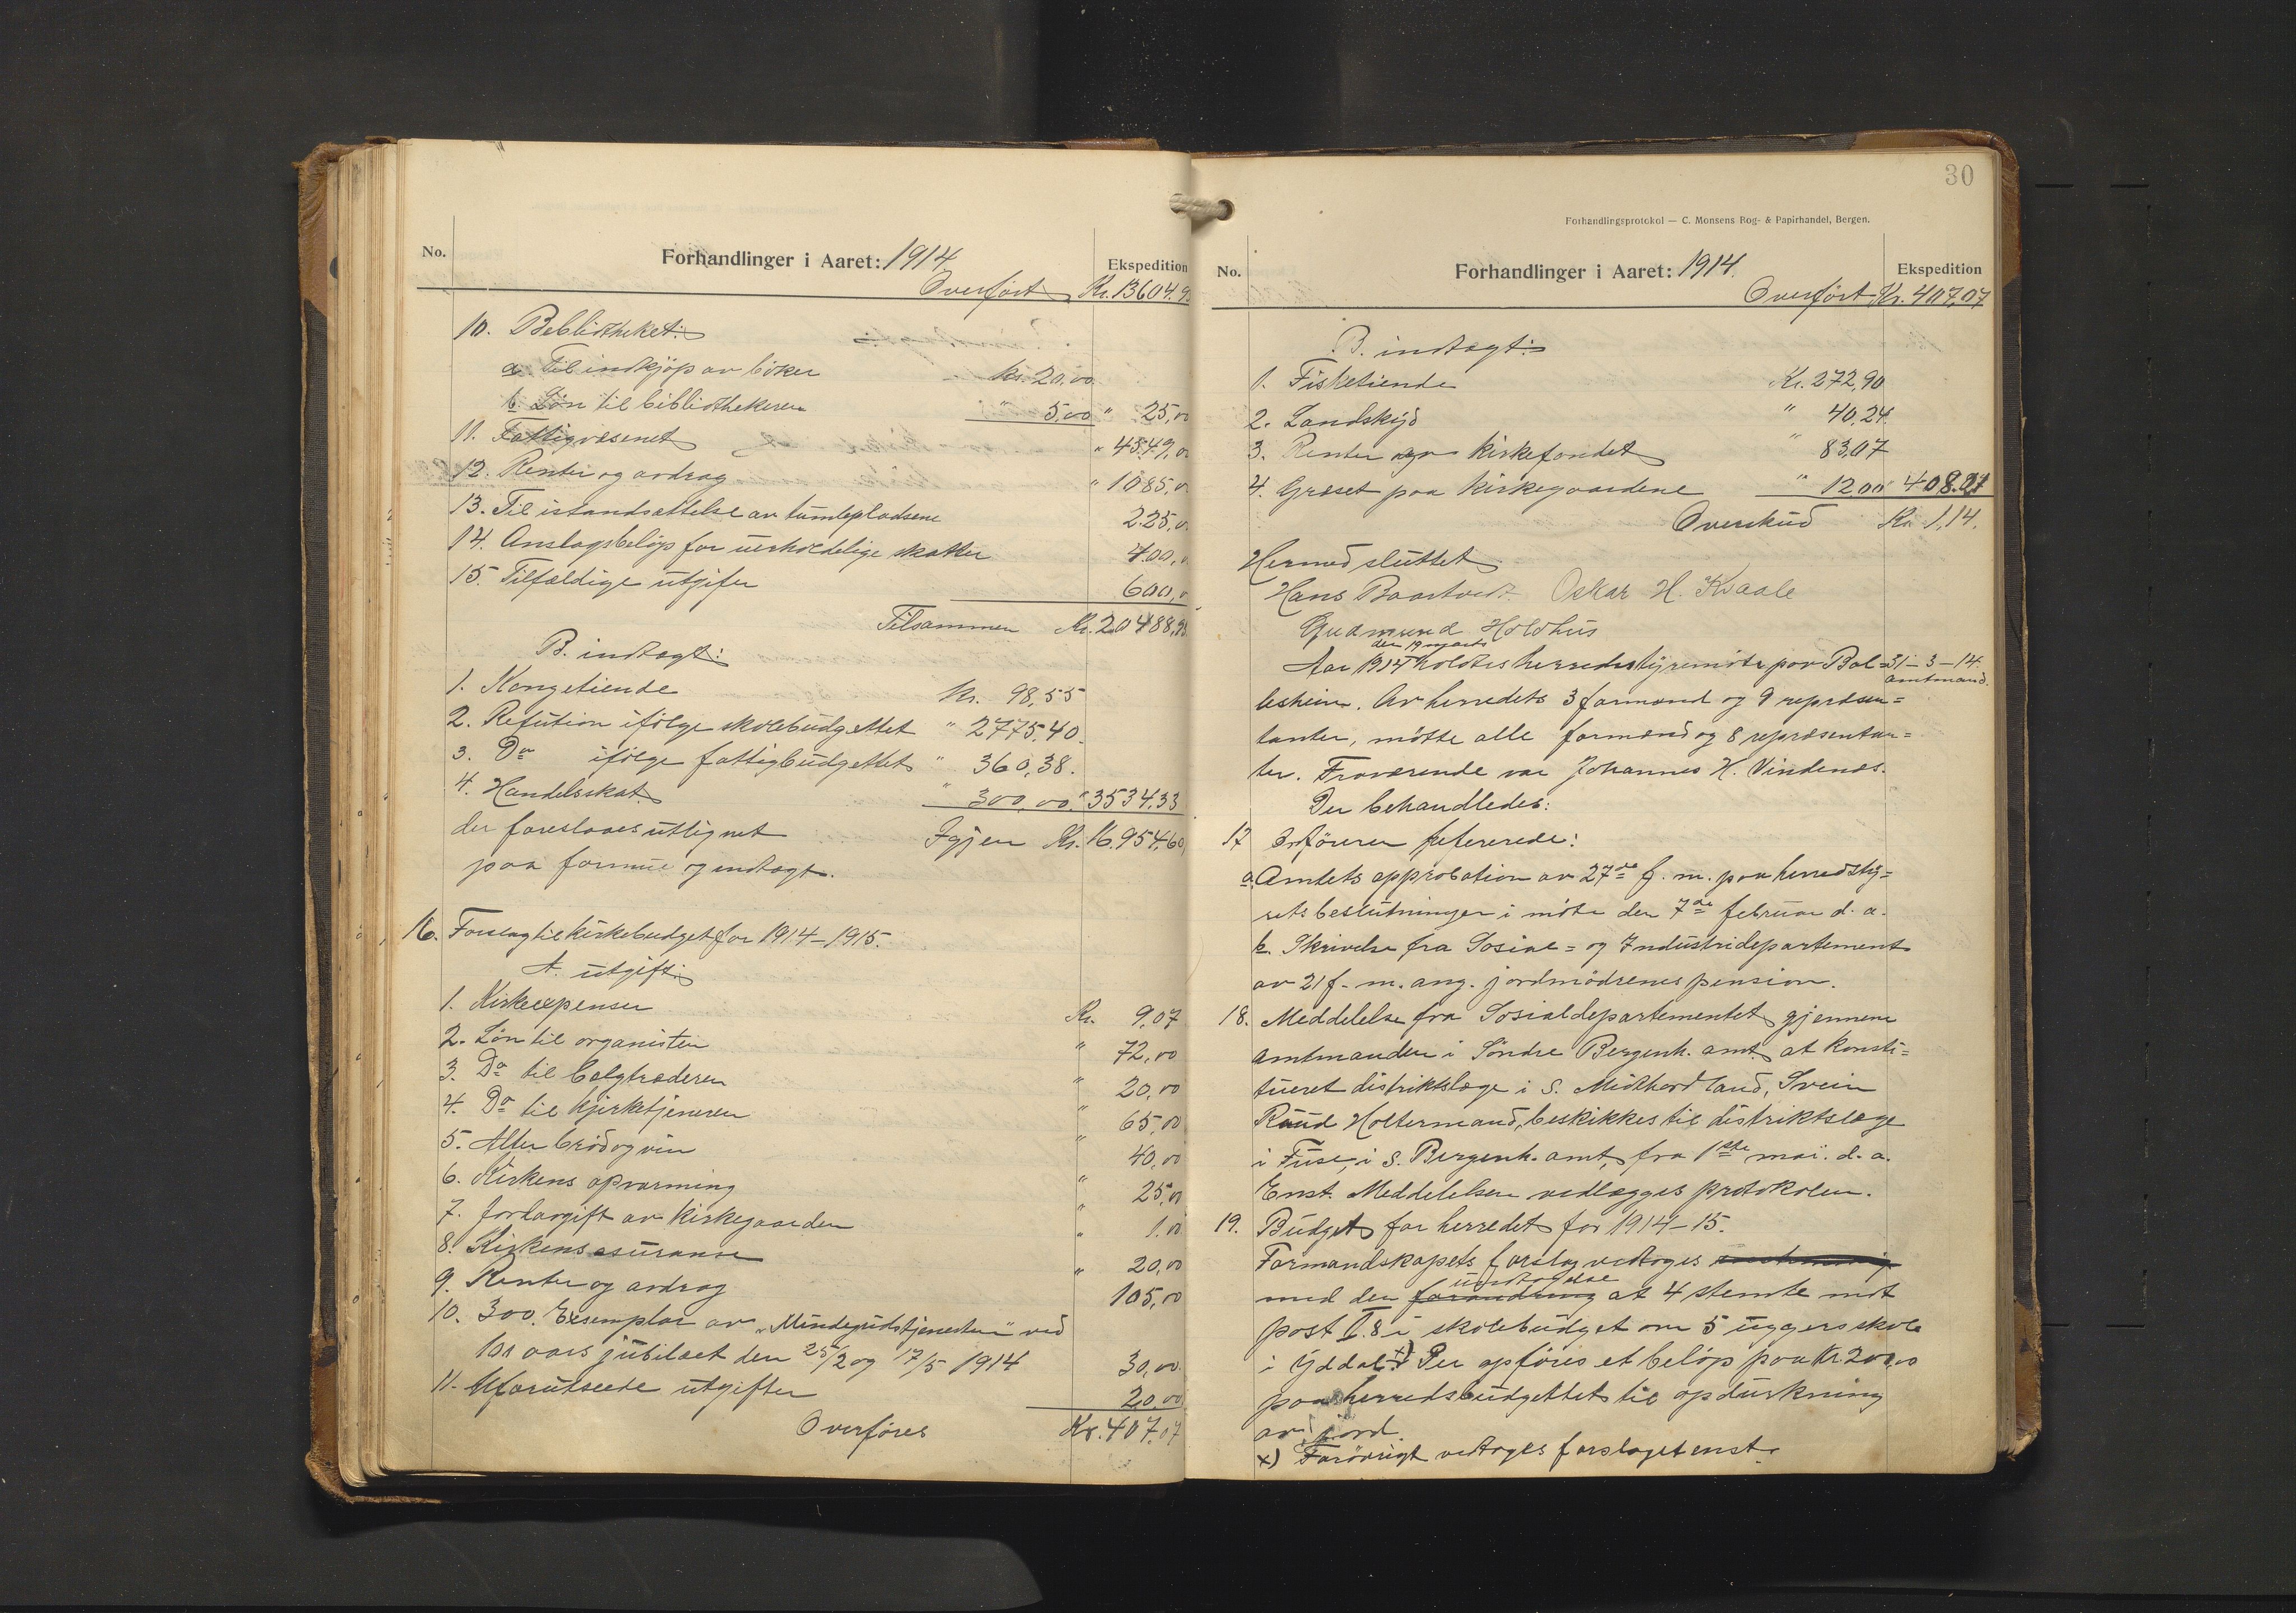 No.
Forhandlinger i Aaret: 1914
Ekspedition
Overført Kr. 13604.9
10. Bebliotheket:
a. Til indkjøp av bøker Kr. 20,00
b. Løn til bibliothekeren " 5,00 " 25,00
11. Fattigvæsenet " 4549,0
12. Renter og avdrag " 1085,0
13. Til istandsættelse av tumlepladsene 225,0
14. Anslagsbeløp for uerholdelige skatter 400,0
15. Tilfældige utgifter 600,0
Tilsammen Kr. 20488,93
B. indtægt:
1. Kongetiende Kr. 98,55
2. Refution ifølge skolebudgettet " 2775,40
3. Do ifølge fattigbudgettet " 360,38.
4. Handelsskat " 300,00 " 3534,33
der foreslaaes utlignet Igjen Kr. 16.954,60
paa formue og indtægt.
16. Forslag til kirkebudget for 1914-1915.
A. utgift:
1. Kirkeexpenser Kr. 9,07
2. Løn til organisten " 72,00
3. Do til bælgtræderen " 20,00
4. Do til kjirketjeneren " 65,00
5. Alter brød og vin " 40,00
6. Kirkens opvarming " 25,00
7. Jordavgift av kirkegaarden " 1.00
8. Kirkens assuranse " 20,00
9. Renter og avdrag 105,00
10. 300 Exsemplar av "Mindegudstjenesten" ved
100 aars jubilæet den 25/2 og 17/5 1914 30,00
11. Uforutseede utgifter 20,00
Overføres Kr. 407,07
30
Forhandlingsprotokol — C. Monsens Bog- & Papirhandel, Bergen.
No.
Forhandlinger i Aaret: 1914.
Ekspedition
Overført Kr. 407,07
B. indtægt:
1. Fisketiende Kr. 272,90
2. Landskyld " 40,24
3. Renter av kirkefondet " 83,07
4. Græset paa kirkegaardene " 12,00 " 408.21
Overskud Kr. 1,14.
Hermed sluttet
Hans Baartvedt Oskar H. Kvaale
Gudmund Holdhus
den 19 marts
Aar 1914 holdtes herredsstyremøte paa Bal= 31-3-14.
amtmand.
lesheim. Av herredets 3 formænd og 9 repræsen=
tanter, møtte alle formænd og 8 repræsentan=
ter. Fraværende var Johannes H. Vindenes.
Der behandledes:
17 Ordføreren refererede:
a. Amtets approbation av 27de f. m. paa herredsty=
rets beslutninger i møte den 7de februar d. a.
b. Skrivelse fra Sosial= og Industridepartement
av 21 f. m. ang. jordmødrenes pension.
18. Meddelelse fra Sosialdepartementet gjennem
amtmanden i Søndre Bergenh. amt, at konsti=
tueret distriktslæge i S. Midthordland, Svein
Ruud Holtermand, beskikkes til distriktslæge
i Fuse, i S. Bergenh. amt, fra 1ste mai d. a.
Enst. Meddelelsen vedlægges protokolen.
19. Budget for herredet for 1914-15.
Formandskapets forslag vedtoges
undtagelse
med den forandring at 4 stemte mot
post II.8 i skolebudget om 5 uggers skole
i Yddal. x) Der opføres et beløp paa Kr. 200,00
paa herredsbudgettet til opdurkning
av jord.
x) Forøvrigt vedtoges forslaget enst.